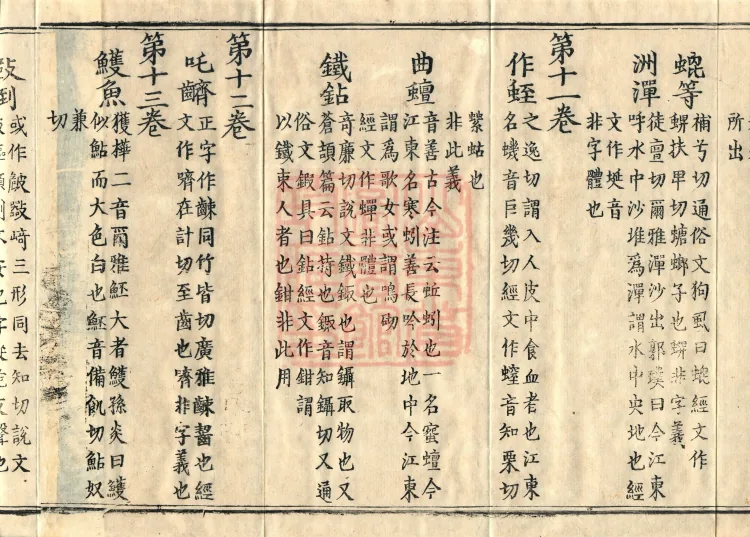 所出
螕等
補兮切通俗文狗虱曰螕經文作
蜱扶卑切螗螂子也蜱非字義
洲潬
徒亶切爾雅潬沙出郭璞曰今江東
呼水中沙堆爲潬謂水中央地也經
文作埏音
非字體也
第十一卷
作蛭
之逸切謂入人皮中食血者也江東
名蟣音巨幾切經文作螲音知栗切
螲蛄也
非此義
曲蟺
音善古今注云蚯蚓也一名蜜蟺今
江東名寒蚓善長吟於地中今江東
謂爲歌女或謂鳴砌
經文作蟬非體也
鐵鉆
奇廉切說文鐵銸也謂鑷取物也又
蒼頡篇云鉆持也銸音知鑷切又通
俗文鍛具曰鉆經文作鉗謂
以鐵束人者也鉗非此用
第十二卷
吒
正字作同竹皆切廣雅齧也經
文作嚌在計切至齒也嚌非字義也
第十三卷
鱯魚
獲樺二音爾雅魾大者鱯孫炎曰鱯
似鮎而大色白也魾音備飢切鮎奴
兼
切
倒
或作崎三形同去知切說文